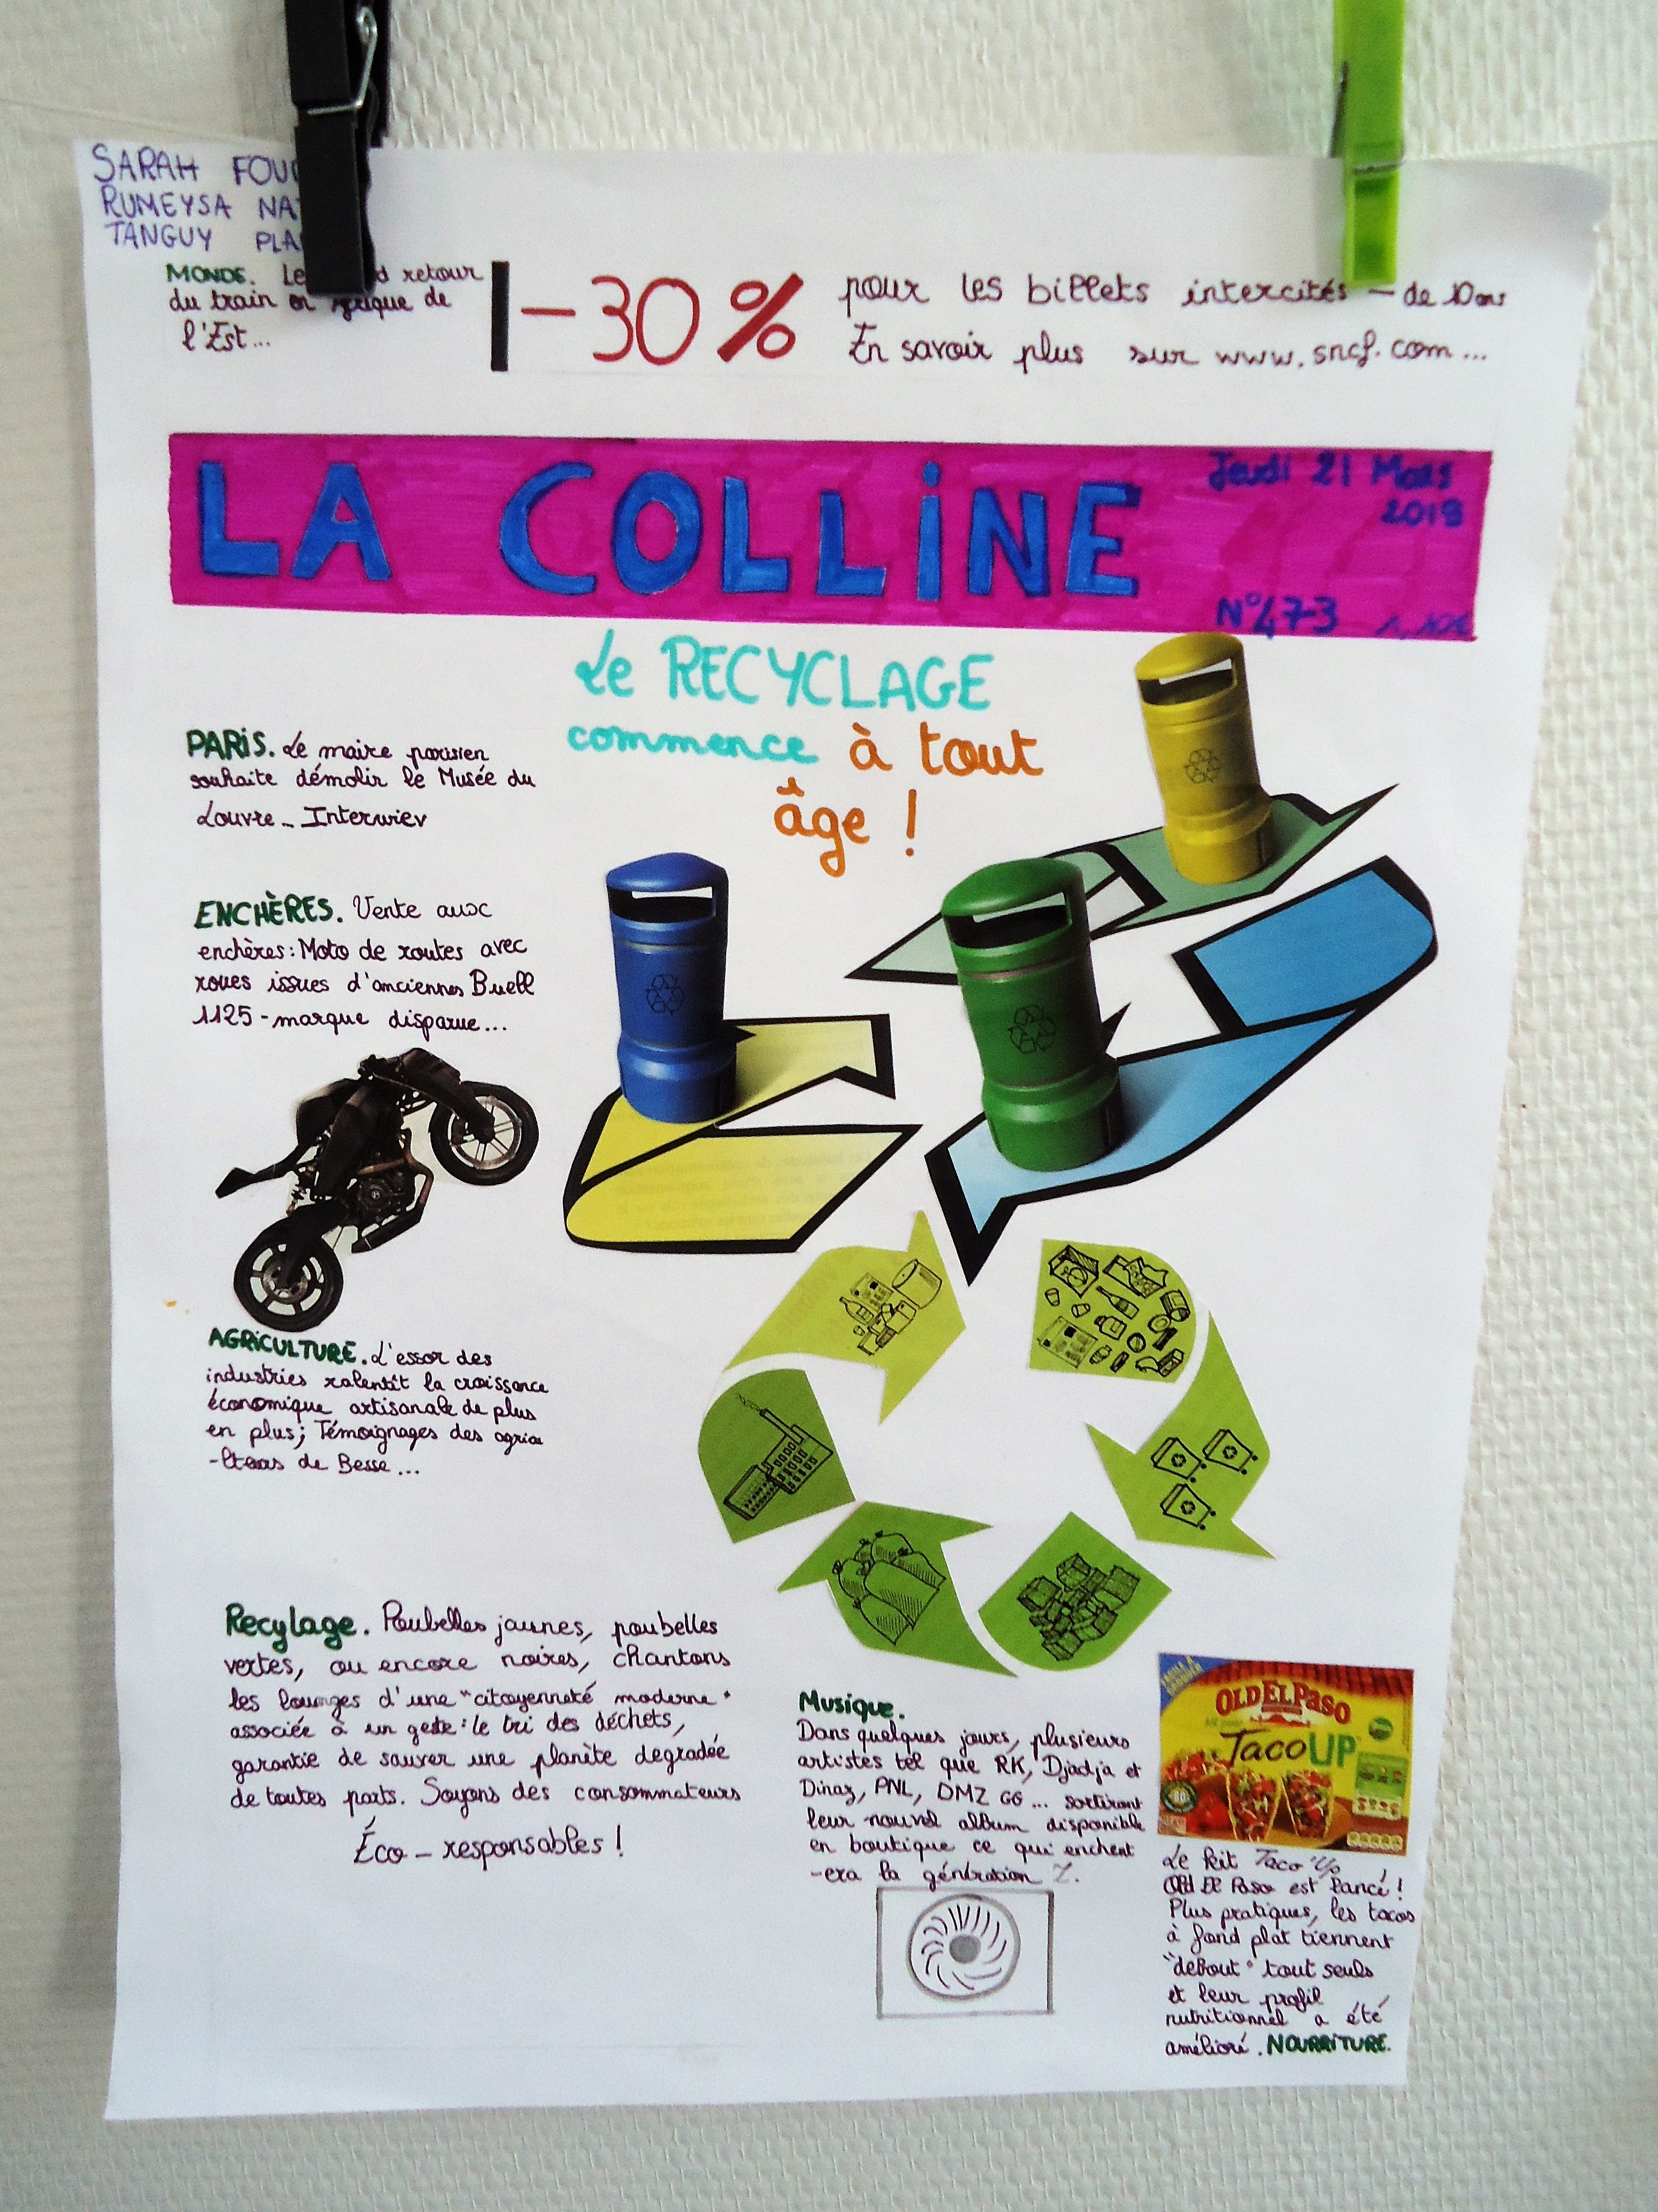 SARAH FOU
RUMEYSA NA
TANGUY PLA
MONDE. Le retour
du train en Afrique de
l'Est...
-30% pour les billets intercités - de 10 ans
En savoir plus sur www.sncf.com...
LA COLLINE
Jeudi 21 Mars
2019
N°473 1,10€
Le RECYCLAGE
commence à tout
âge !
PARIS. Le maire parisien
souhaite démolir le Musée du
Louvre_ Interwiev
ENCHÈRES. Vente aux
enchères: Moto de routes avec
roues issues d'anciennes Buell
1125 - marque disparue...
AGRICULTURE. L'essor des
industries ralentit la croissance
économique artisanale de plus
en plus; Témoignages des agricu
-lteurs de Besse...
Recylage. Poubelles jaunes, poubelles
vertes, ou encore noires, chantons
les lounges d'une "citoyenneté moderne"
associée à un geste: le tri des déchets,
garantie de sauver une planète degradée
de toutes parts. Soyons des consommateurs
Éco - responsables !
Musique.
Dans quelques jours, plusieurs
artistes tel que RK, Djadja et
Dinaz, PNL, DMZ GG ... sortiront
leur nouvel album disponible
en boutique ce qui enchent
-era la génération Z.
OLD EL PASO
Taco UP
Le kit Taco'Up
Old El Paso est lancé !
Plus pratiques, les tacos
à fond plat tiennent
"debout" tout seuls
et leur profil
nutritionnel a été
amélioré. NOURRITURE.